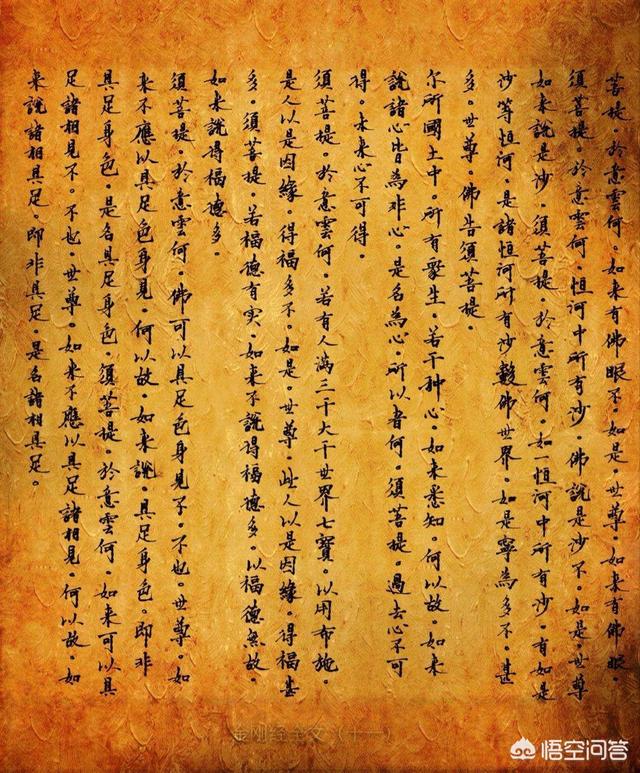 菩提。於意雲何。如来有佛眼不。如是。世尊。如来有佛眼。
須菩提。於意雲何。恒河中所有沙。佛說是沙不。如是。世尊
如来說是沙。須菩提。於意雲何。如一恒河中所有沙。有如是
沙等恒河。是諸恒河所有沙數佛世界。如是寧為多不。甚
多。世尊。佛告須菩提。
尔所國土中。所有眾生。若干种心。如来悉知。何以故。如来
說諸心皆為非心。是名為心。所以者何。須菩提。過去心不可
得。未来心不可得。
須菩提。於意雲何。若有人滿三千大千世界七寶。以用布施。
是人以是因緣。得福多不。如是。世尊。此人以是因緣。得福甚
多。須菩提。若福德有实。如来不說得福德多。以福德無故。
如来說得福德多。
須菩提。於意雲何。佛可以具足色身見不。不也。世尊。如
来不應以具足色身見。何以故。如来說。具足身色。即非
具足身色。是名具足身色。須菩提。於意雲何。如来可以具
足諸相見不。不也。世尊。如来不應以具足諸相見。何以故。如
来說諸相具足。即非具足。是名諸相具足。
金刚经全文（十一）
悟空问答